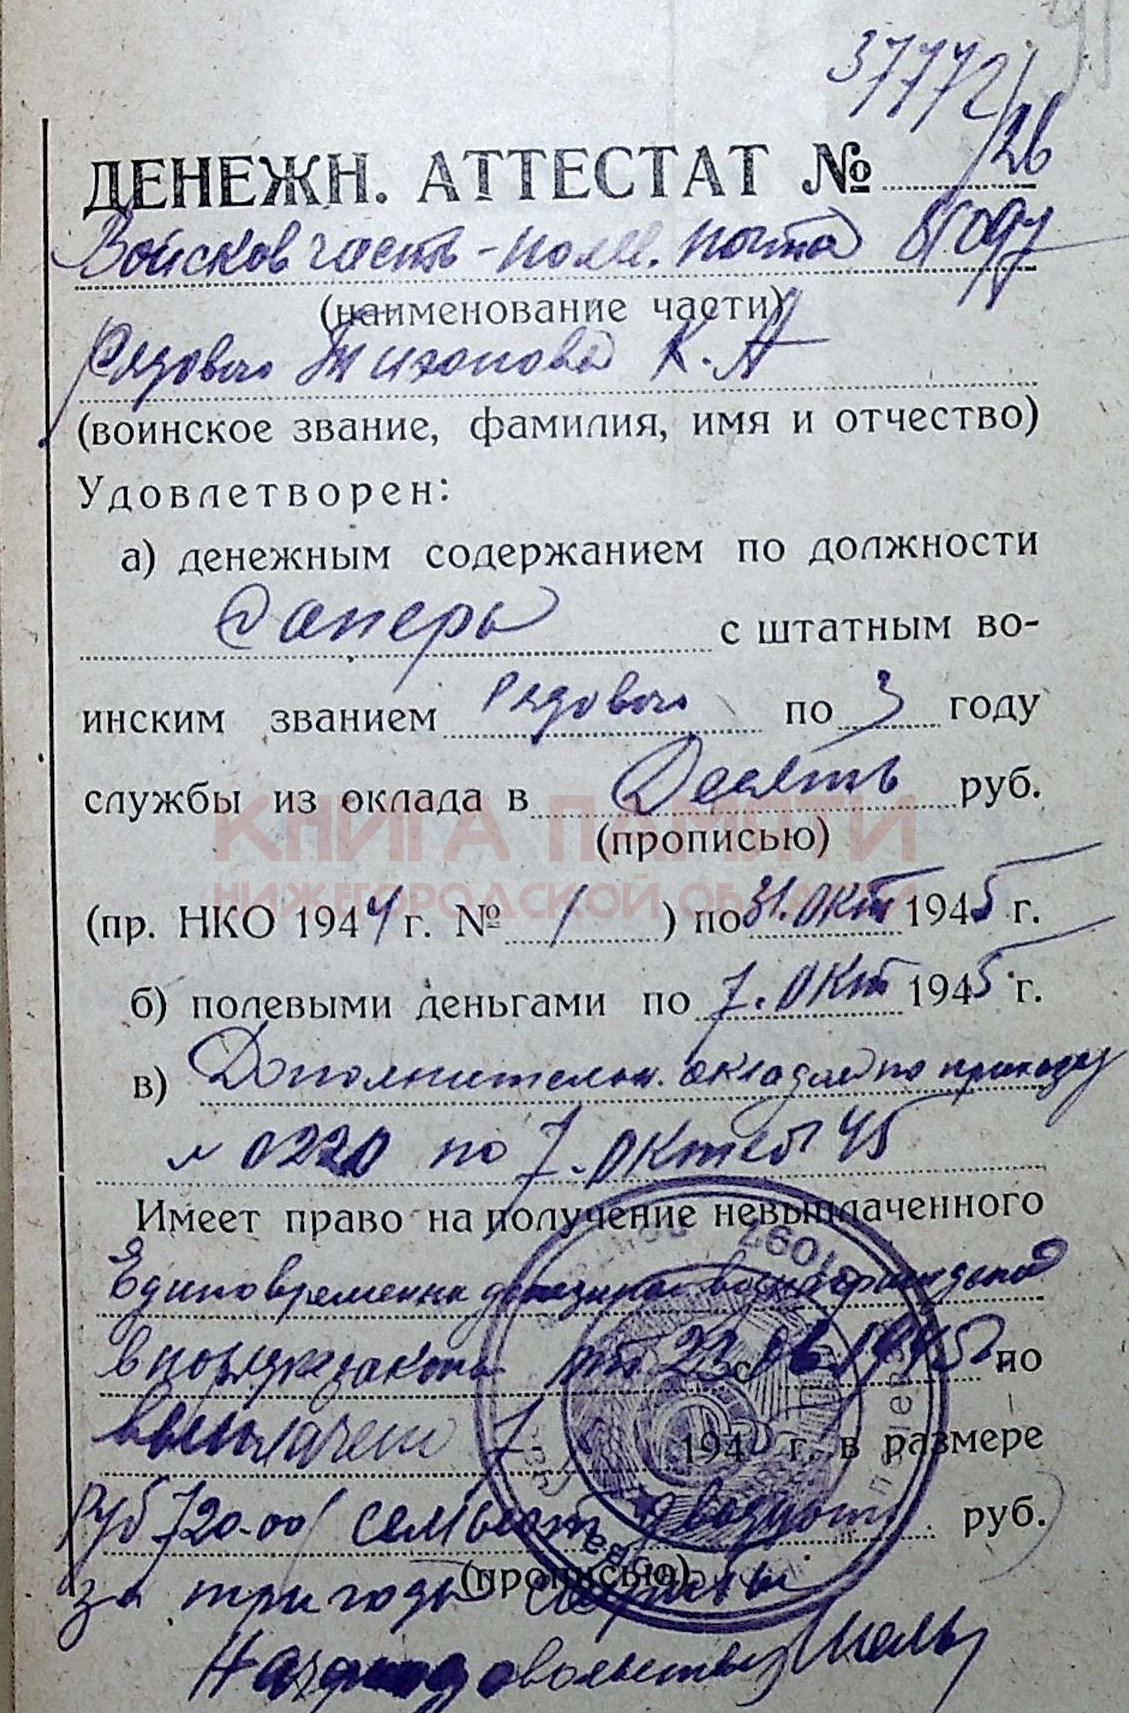 37772/26
ДЕНЕЖН. АТТЕСТАТ №
Войсков часть - полев. почта 81097
(наименование части)
Рядового Тихонова К. А
(воинское звание, фамилия, имя и отчество)
Удовлетворен:
а) денежным содержанием по должности
Саперы с штатным во-
инским званием Рядового по 3 году
службы из оклада в Десять руб.
(прописью)
КНИГА ПАМЯТИ
НИЖЕГОРОДСКОЙ ОБЛАСТИ
(пр. НКО 1944 г. № 1 ) по 31. окт 1945 г.
б) полевыми деньгами по 7. окт 1945 г.
в) Дополнительн. окладом по приказу
№ 0220 по 7. Октяб 45
Имеет право на получение невыплаченного
Единовременна денежное вознаграждение
в поряд закона от 23 с 06. 1945 г. по
выплачено 194 г. в размере
Руб 720-00 / семьсот двадцать руб.
(прописью)
за три года службы
Нач довольствия